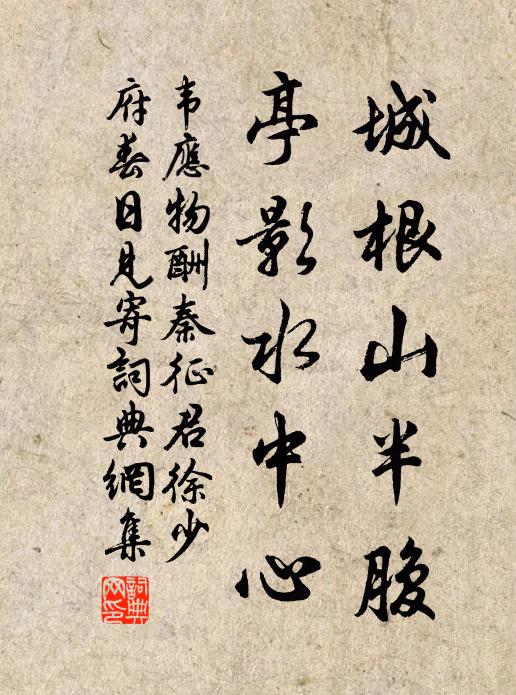 城根山半腹
亭影水中心
韦應物酬秦征君徐少
府春日見寄詞典網集
詞典網印